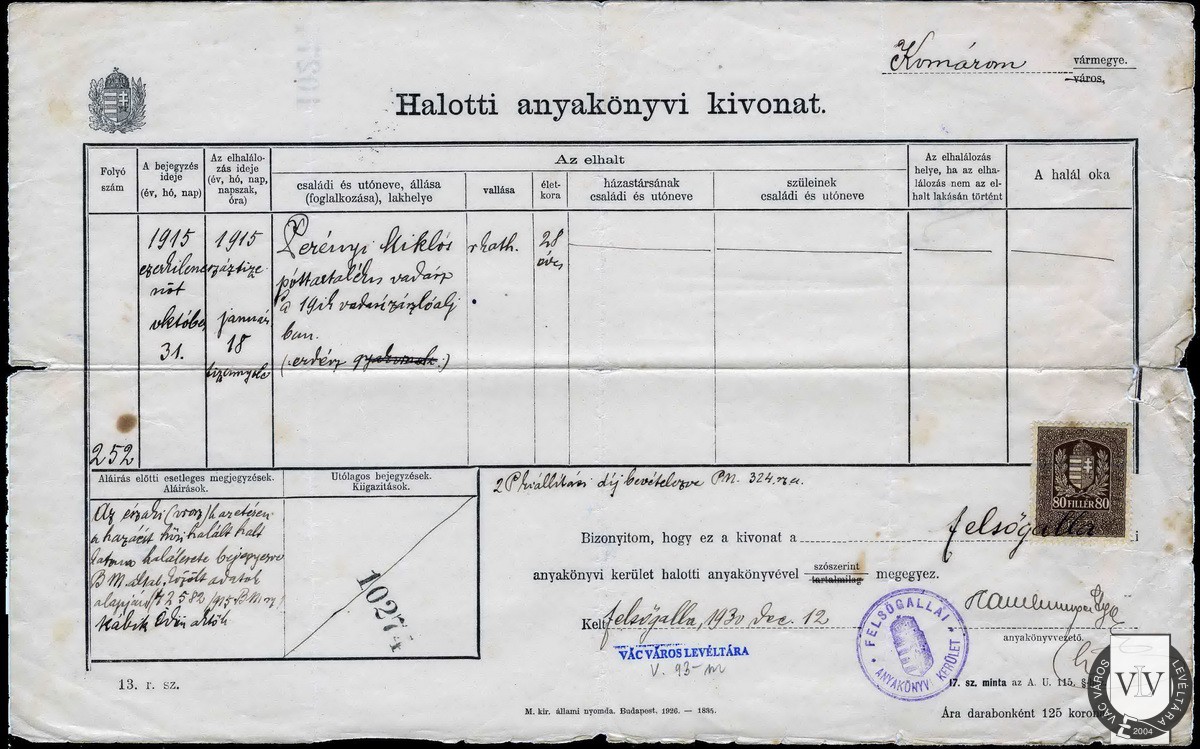 Komárom vármegye.
város,
Halotti anyakönyvi kivonat.
Folyó szám
A bejegyzés ideje (év, hó, nap)
Az elhalálozás ideje (év, hó, nap, napszak, óra)
Az elhalt
családi és utóneve, állása (foglalkozása), lakhelye
vallása
életkora
házastársának családi és utóneve
szüleinek családi és utóneve
Az elhalálozás helye, ha az elhalálozás nem az elhalt lakásán történt
A halál oka
252
1915
október
31.
1915
január
18
Perényi Miklós
póttartalékos vadász
a 19ik vadászzászlóalj
ban.
(erdész
r kath.
28
éves
Aláírás előtti esetleges megjegyzések. Aláírások.
Utólagos bejegyzések. Kiigazítások.
Az északi (orosz) harctéren
a hazáért hősi halált halt
halálesete bejegyezve
B M által közölt adatok
alapján
10274
2 P kiállítási díj bevételezve PN. 324. sz. a.
Bizonyitom, hogy ez a kivonat a felsőgalla i
anyakönyvi kerület halotti anyakönyvével szószerint megegyez.
tartalmilag
Kelt felsőgalla, 1930 dec. 12
anyakönyvvezető.
FELSŐGALLAI ANYAKÖNYVI KERÜLET
80 FILLÉR 80
VÁC VÁROS LEVÉLTÁRA
V. 93-m
13. r. sz.
17. sz. minta az A. U. 115. §
M. kir. állami nyomda. Budapest, 1926. — 1835.
Ára darabonként 125 koron
VÁC VÁROS LEVÉLTÁRA
VLV
2004